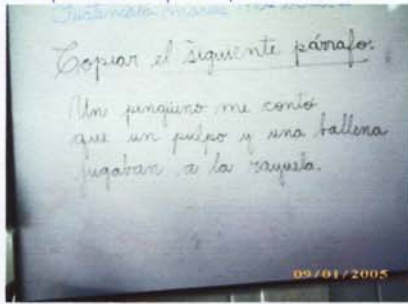 Copiar el siguiente párrafo.
Un pingüino me contó
que un pulpo y una ballena
jugaban a la rayuela.
09/01/2005